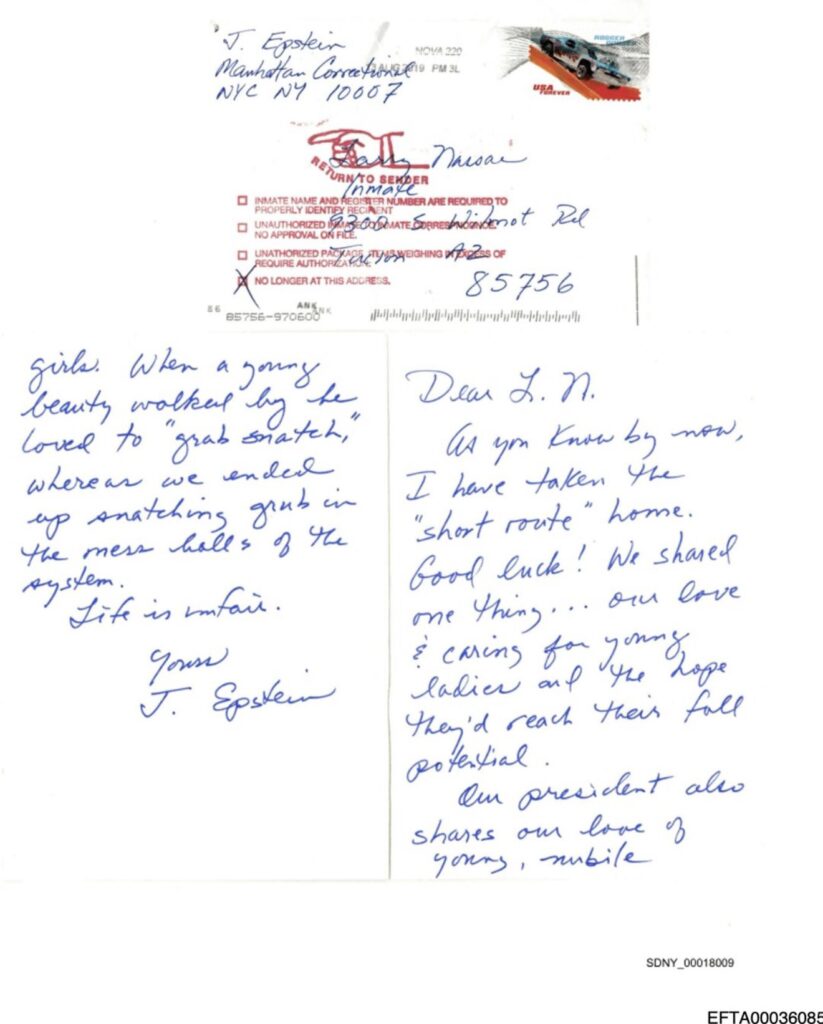 J. Epstein
Manhattan Correctional
NYC NY 10007
NOVA 220
AUG 2019 PM 3L
USA
FOREVER
RETURN TO SENDER
Larry Nassar
Inmate
9300 S. Wilmot Rd
Tucson AZ
85756
INMATE NAME AND REGISTER NUMBER ARE REQUIRED TO
PROPERLY IDENTIFY RECIPIENT
UNAUTHORIZED INMATE TO INMATE CORRESPONDENCE,
NO APPROVAL ON FILE.
UNATHORIZED PACKAGE, ITEMS WEIGHING IN EXCESS OF
REQUIRE AUTHORIZATION.
X NO LONGER AT THIS ADDRESS.
86
ANK
ANK
85756-970600
Dear L. N.
As you know by now,
I have taken the
"short route" home.
Good luck! We shared
one thing... our love
& caring for young
ladies and the hope
they'd reach their full
potential.
Our president also
shares our love of
young, nubile
girls. When a young
beauty walked by he
loved to "grab snatch,"
whereas we ended
up snatching grub in
the mess halls of the
system.
Life is unfair.
Yours
J. Epstein
SDNY_00018009
EFTA00036085